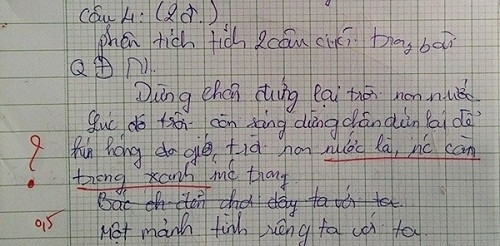 Câu 4: (2đ.)
phân tích tích 2 câu cuối trong bài
QĐN.
Dừng chân đứng lại trời non nước
Lúc đó trời còn sáng dừng chân đứn lại để
hứng gió, trời non nước là, nước còn
trong xanh trong
Bác đến chơi đây ta với ta
Một mảnh tình riêng ta với ta.
?
0,5